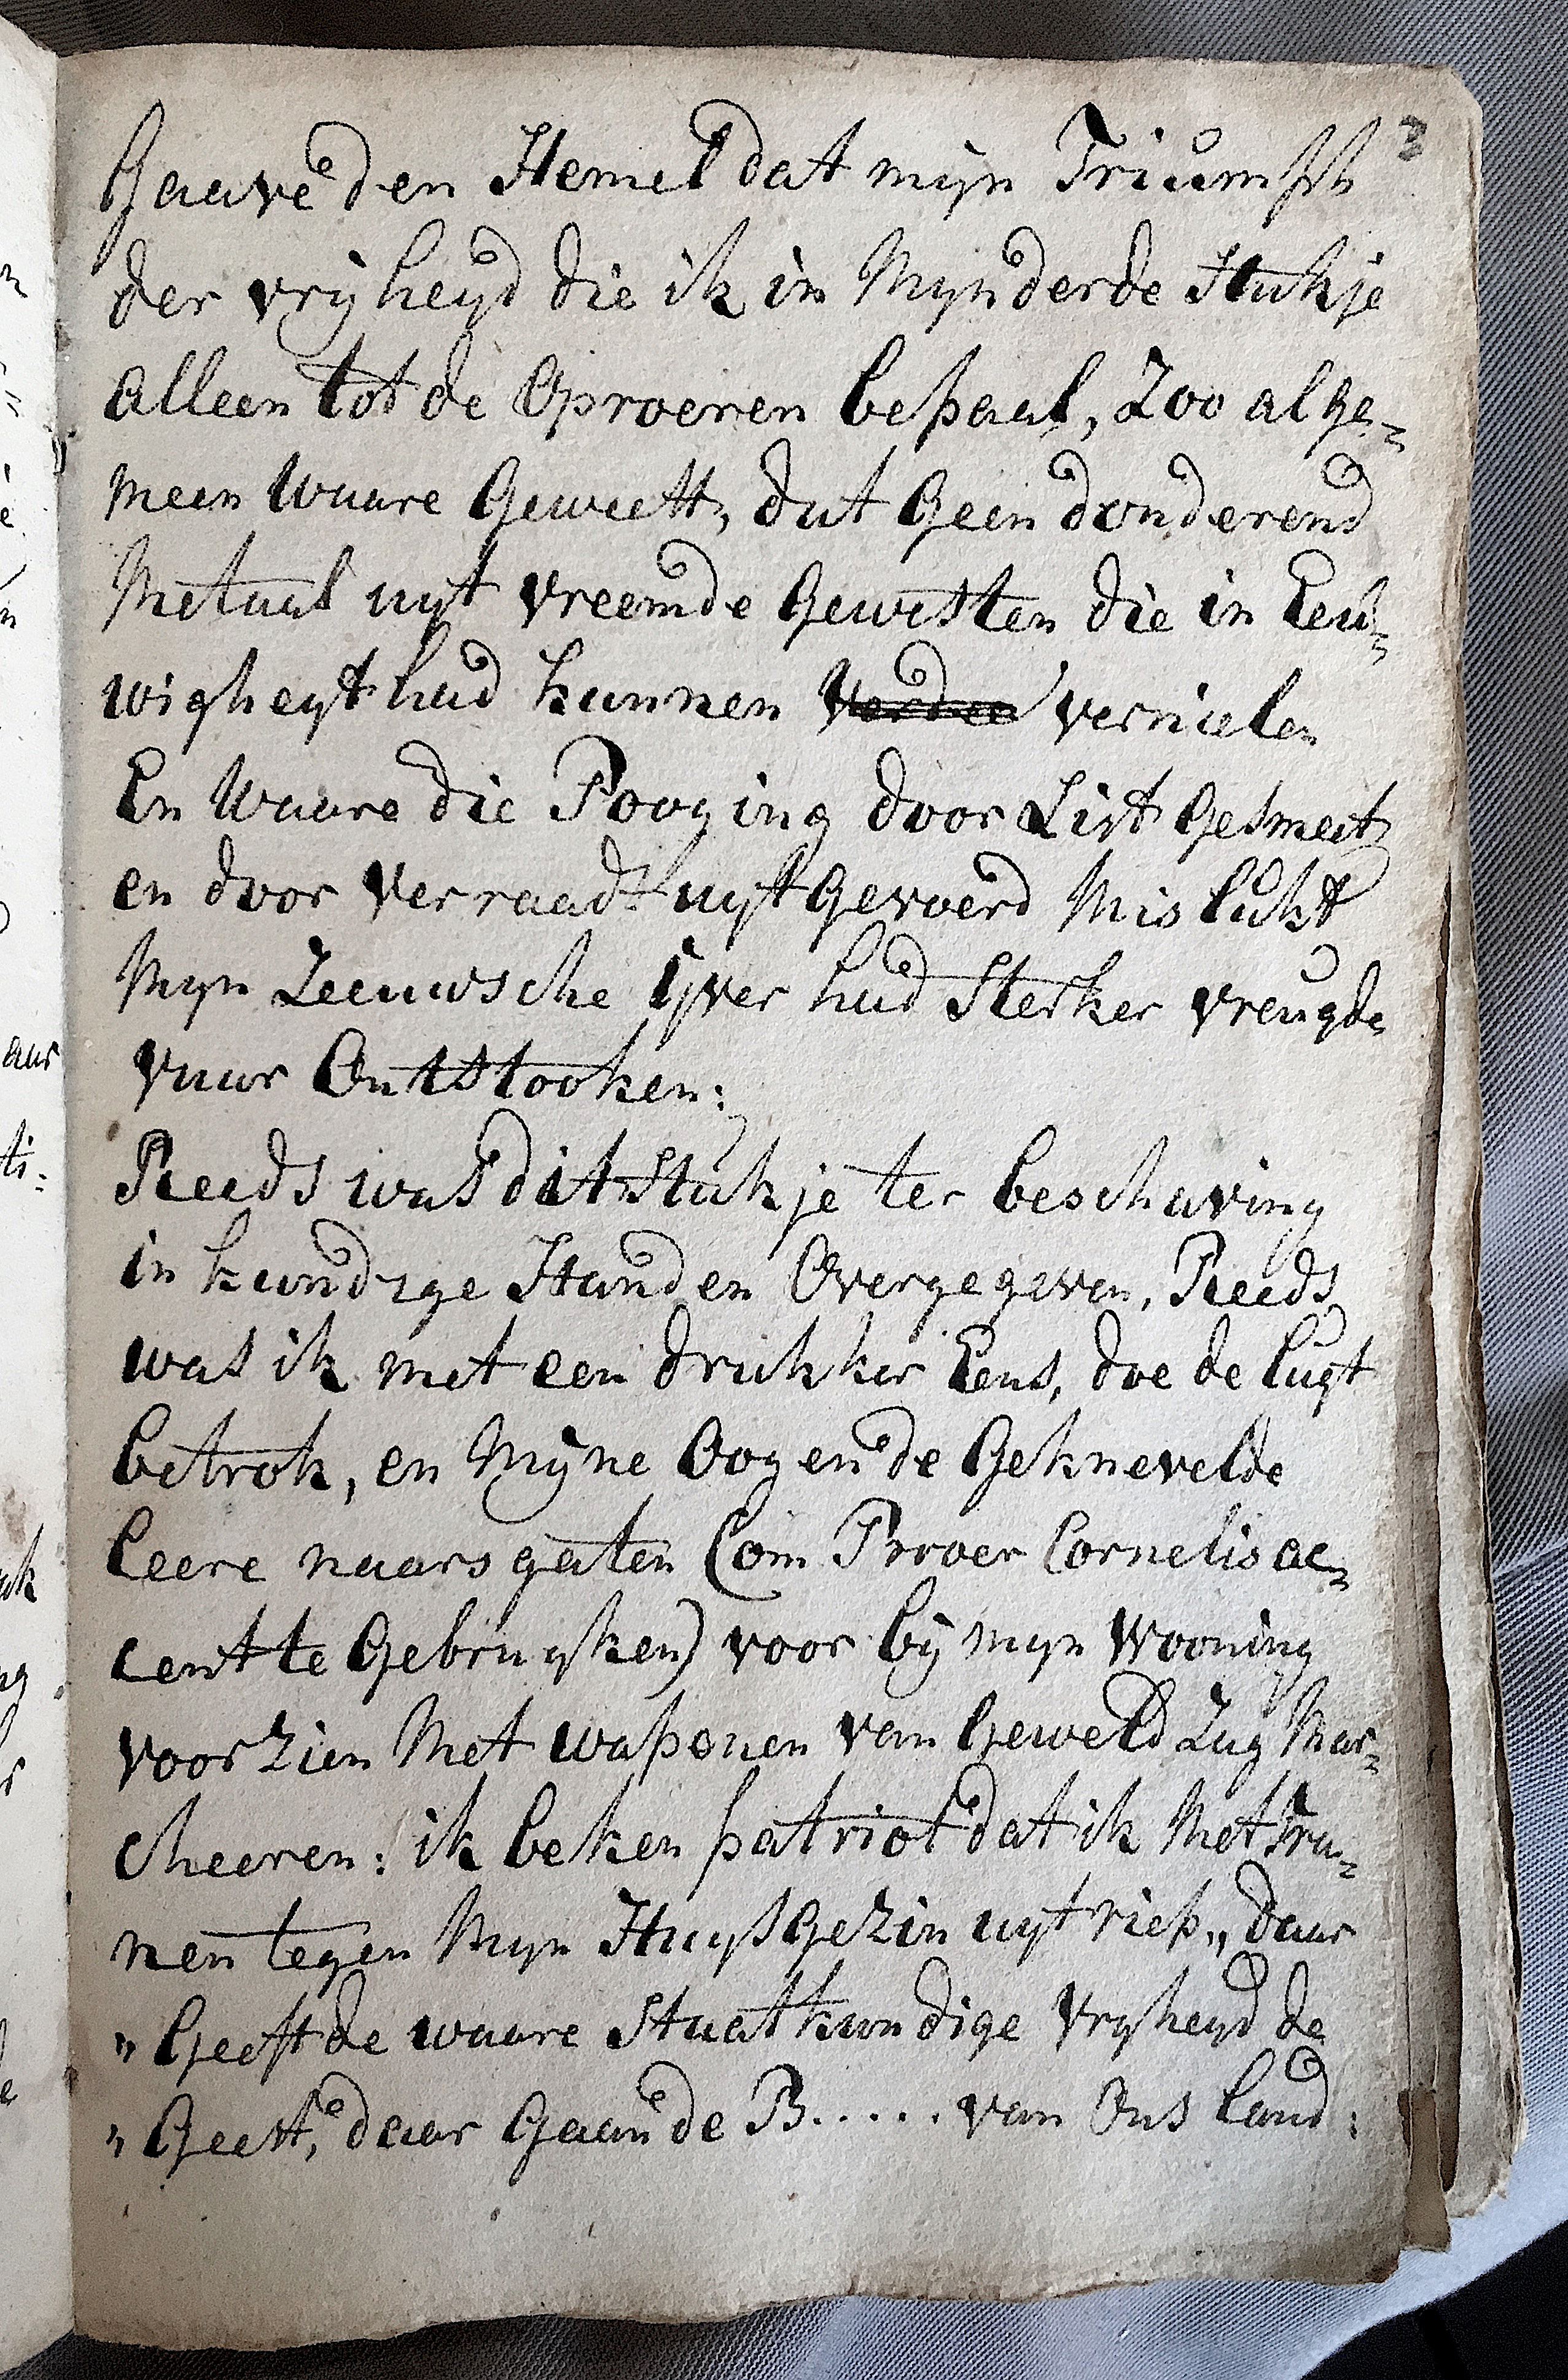 3
Gaave den Hemel dat mijn Triumph
der vrijheyd die ik in Mijn derde Stukje
alleen tot de Oproeren bepaal, Zoo alge=
meen waare Geweest, dat Geen donderend
Metaal uyt vreemde Gewesten die in Eeu=
wigheyt had kunnen vernielen
En waare die Pooging door List Gesmeet
en door Verraadt uytgevoerd Mislukt
Mijn Zeeuwsche ijver had Sterker vreugde
vuur Ontstooken:
Reeds was dit Stukje ter beschaving
in kundige Handen Overgegeven, Reeds
was ik met een drukker Eens, doe de lugt
betrok, en Mijne Oogen de Geknevelde
leere naarsgaten (om Proer Cornelis ac=
cent te Gebruyken) voor bij mijn Wooning
voorzien Met wapenen van Geweld Zag Mar=
cheeren: ik beken patriot dat ik Met Tra=
nen tegen Mijn Huysgezin uyt riep„ daar
„ Geeft de waare Staatkundige Vryheyd de
„ Geest, daar Gaan de B..... van Ons land: